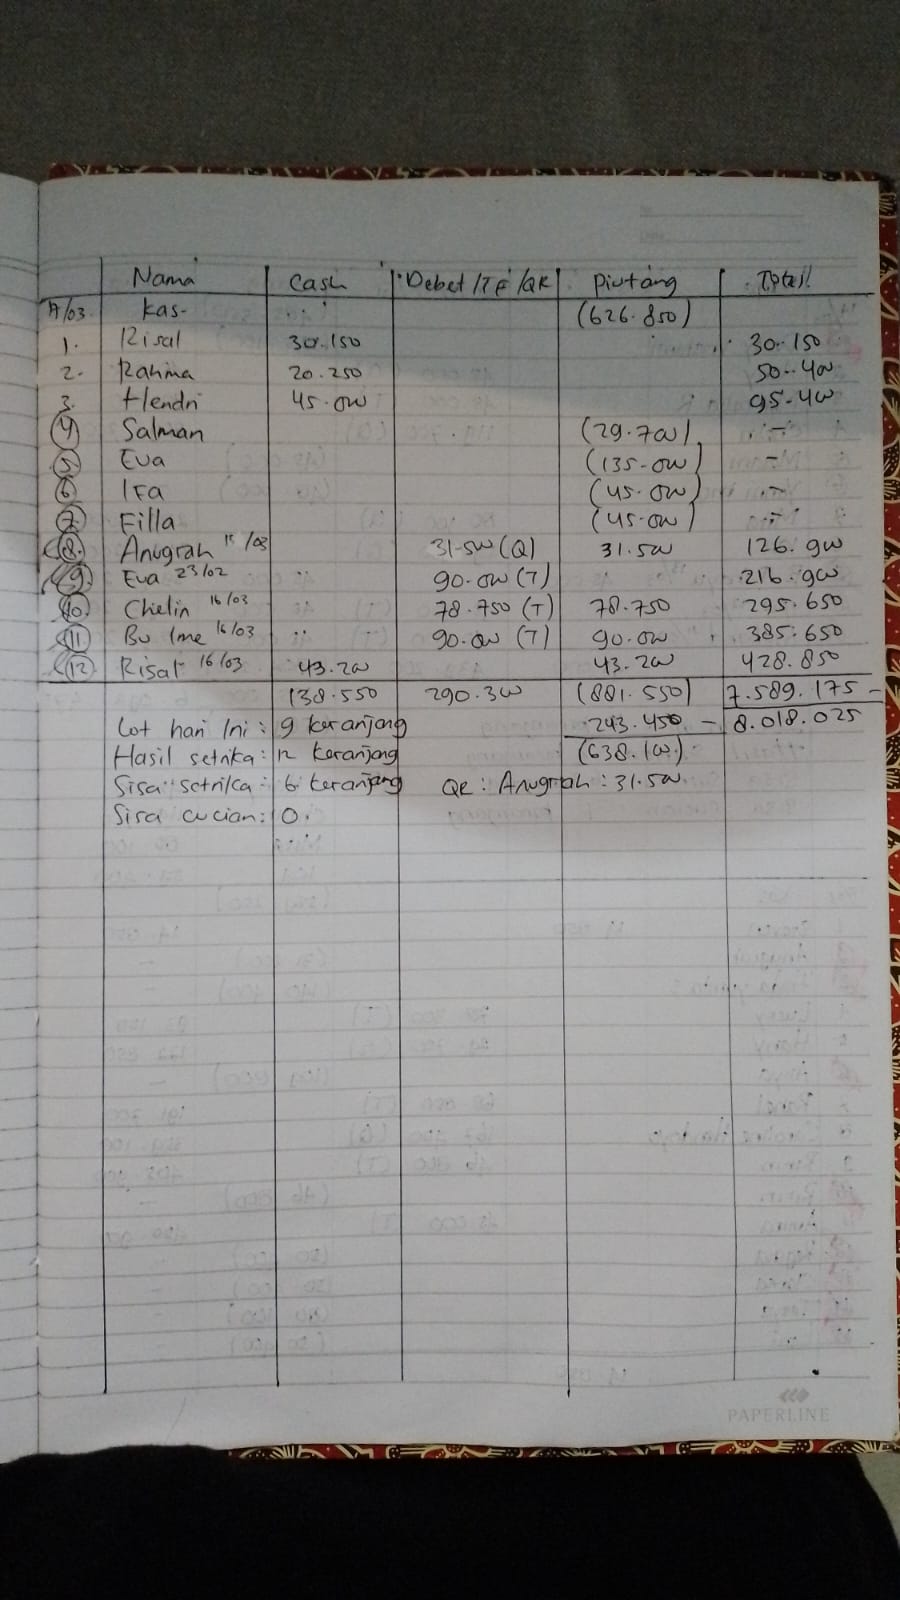 Nama Cash Debet/TF/QR Piutang Total
17/03. Kas- (626.850)
1. Risal 30.150 30.150
2. Rahma 20.250 50.400
3. Hendri 45.000 95.400
4 Salman (29.700) -
5 Eva (135.000) -
6 Ifa (45.000) -
7 Filla (45.000) -
8. Anugrah 15/03 31.500 (Q) 31.500 126.900
9. Eva 23/02 90.000 (T) 216.900
10 Chelin 16/03 78.750 (T) 78.750 295.650
11 Bu Ime 16/03 90.000 (T) 90.000 385.650
12 Risal 16/03 43.200 43.200 428.850
138.550 290.300 (881.550) 7.589.175 -
Lot hari Ini : 9 keranjang 243.450 - 8.018.025
Hasil setrika : 12 keranjang (638.100)
Sisa setrika : 6 keranjang QR : Anugrah : 31.500
Sisa cucian : 0.
PAPERLINE